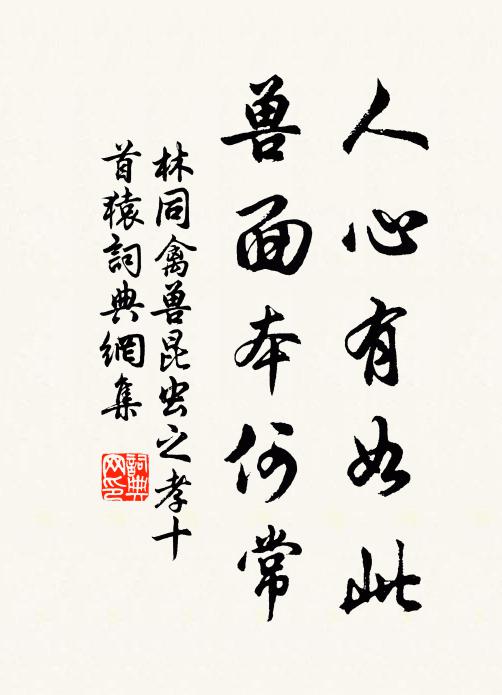 人心有如此
兽面本何常
林同禽兽昆虫之孝十
首猿詞典網集
詞典
网印